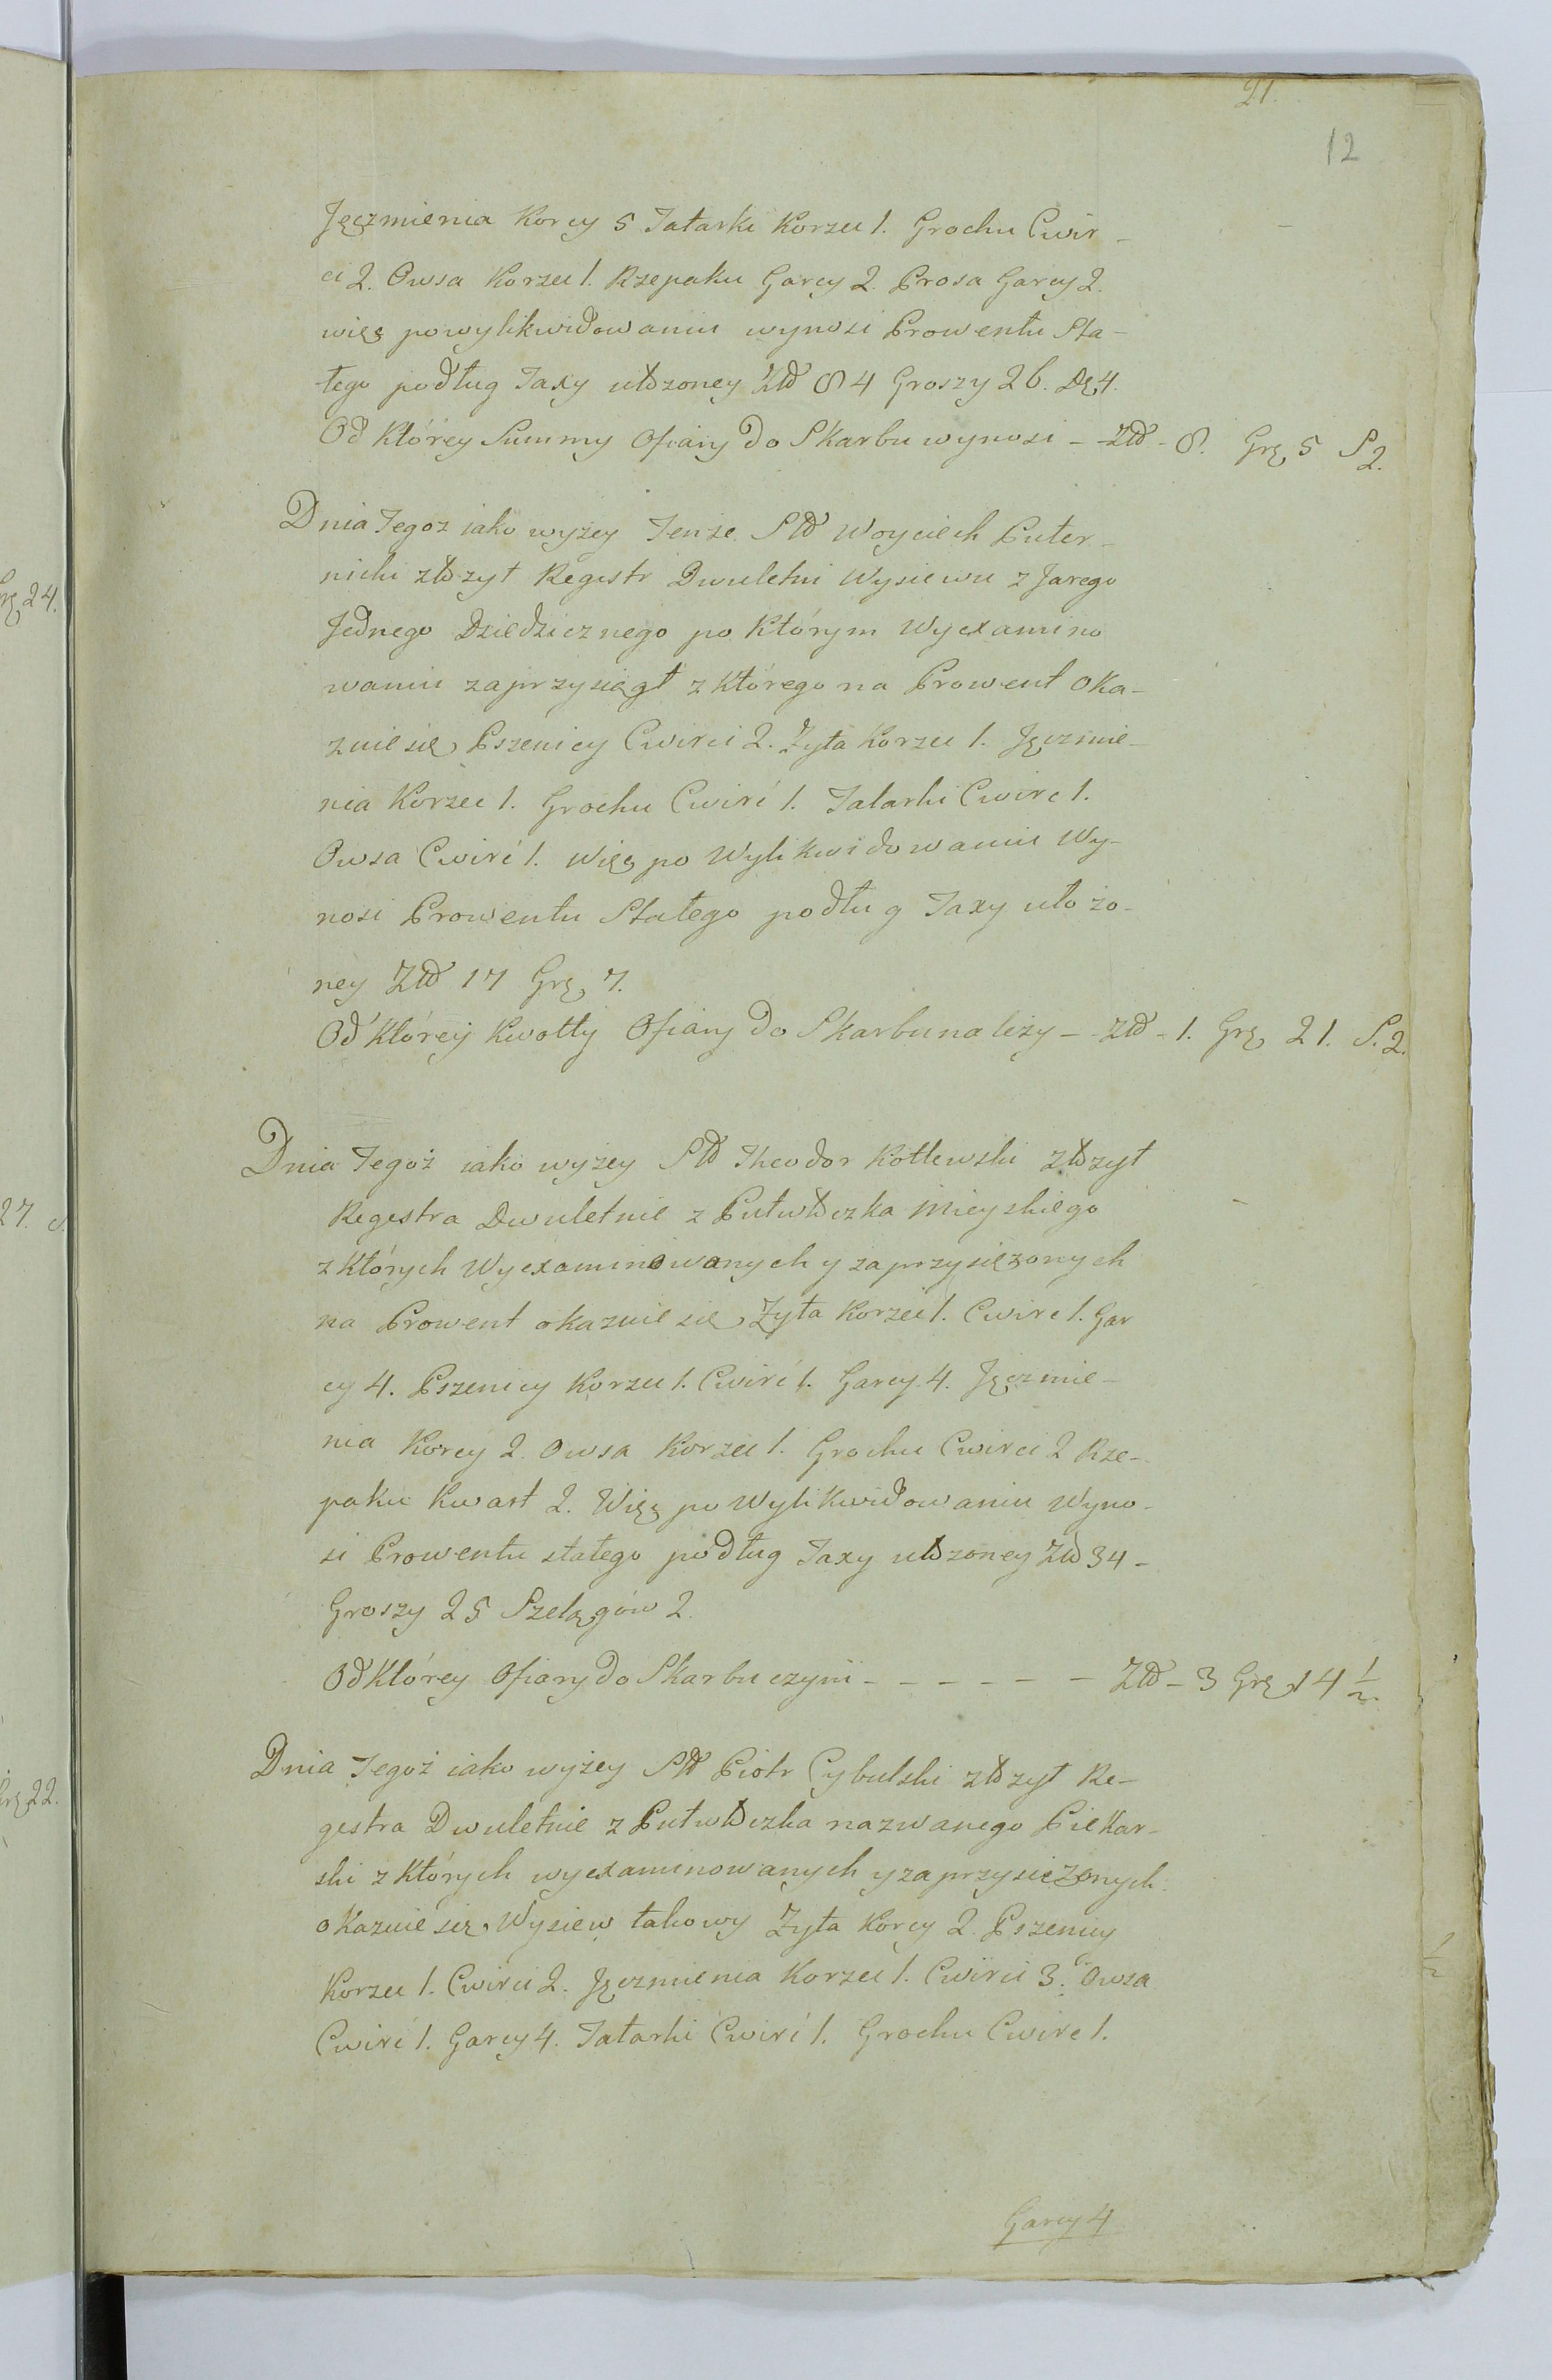 21.
12
Jęczmienia Korcy 5 Tatarki Korzec 1. Grochu Cwir-
ci 2. Owsa Korzec 1. Rzepaku Garcy 2. Prosa Garcy 2.
więc powylikwidowaniu wynosi Prowentu Sta-
łego podług Taxy ułożoney Zło 84 Groszy 26. De 4.
Od Którey Summy Ofiary do Skarbu wynosi - Zło - 8. Grę 5 S 2.
Dnia Tegoz iako wyżey Tenże Sło Woyciech Puter-
nicki złożył Regestr Dwuletni Wysiewu z Jarego
Jednego Dziedzicznego po Którym Wyexamino
waniu zaprzysiągł z którego na Prowent oka-
zuie się Pszenicy Cwirci 2. Żyta Korzec 1. Jęczmie-
nia Korzec 1. Grochu Cwirć 1. Tatarki Cwirc 1.
Owsa Cwirć 1. Więc po Wylikwidowaniu Wy-
nosi Prowentu Stałego podług Taxy ułożo-
ney Zło 17 Grę 7.
Od Którey Kwotty Ofiary do Skarbu należy - Zło - 1. Grę 21. S. 2.
Dnia Tegoż iako wyżey Sło Theodor Kotlewski złożył
Regestra Dwuletnie z Putwłoczka Mieyskiego
z Których Wyexaminowanych y zaprzysiężonych
na Prowent okazuie się Żyta Korzec 1. Cwirc 1. Gar
cy 4. Pszenicy Korzec 1. Cwirć 1. Garcy 4. Jęczmie-
nia Korcy 2. Owsa Korzec 1. Grochu Cwirci 2 Rze-
paku Kwart 2. Więc po Wylikwidowaniu Wyno-
si Prowentu stałego podług Taxy ułożoney Zło 34 -
Groszy 25 Szelągów 2.
Od Którey Ofiary do Skarbu czyni - - - - - - Zło - 3 Grę 14 1/2
Dnia Tegoż iako wyżey Sło Piotr Cybulski złożył Re-
gestra Dwuletnie z Putwłoczka nazwanego Piekar-
ski z Których wyexaminowanych y zaprzysieżonych
okazuie się Wysiew takowy Żyta Korcy 2. Pszenicy
Korzec 1. Cwirci 2. Jęczmienia Korzec 1. Cwirci 3. Owsa
Cwirć 1. Garcy 4. Tatarki Cwirć 1. Grochu Cwirc 1.
Garcy 4